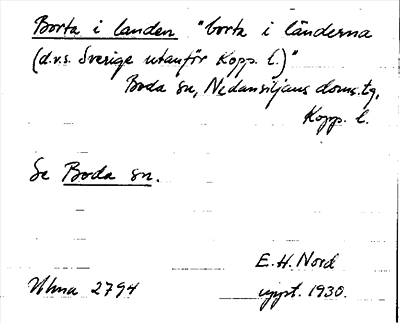 Borta i landen "borta i länderna
(d.v.s. Sverige utanför Kopp. l.)"
Boda sn, Nedansiljans doms.tg,
Kopp. l.
Se Boda sn.
E.H. Nord
Ulma 2794 uppt. 1930.